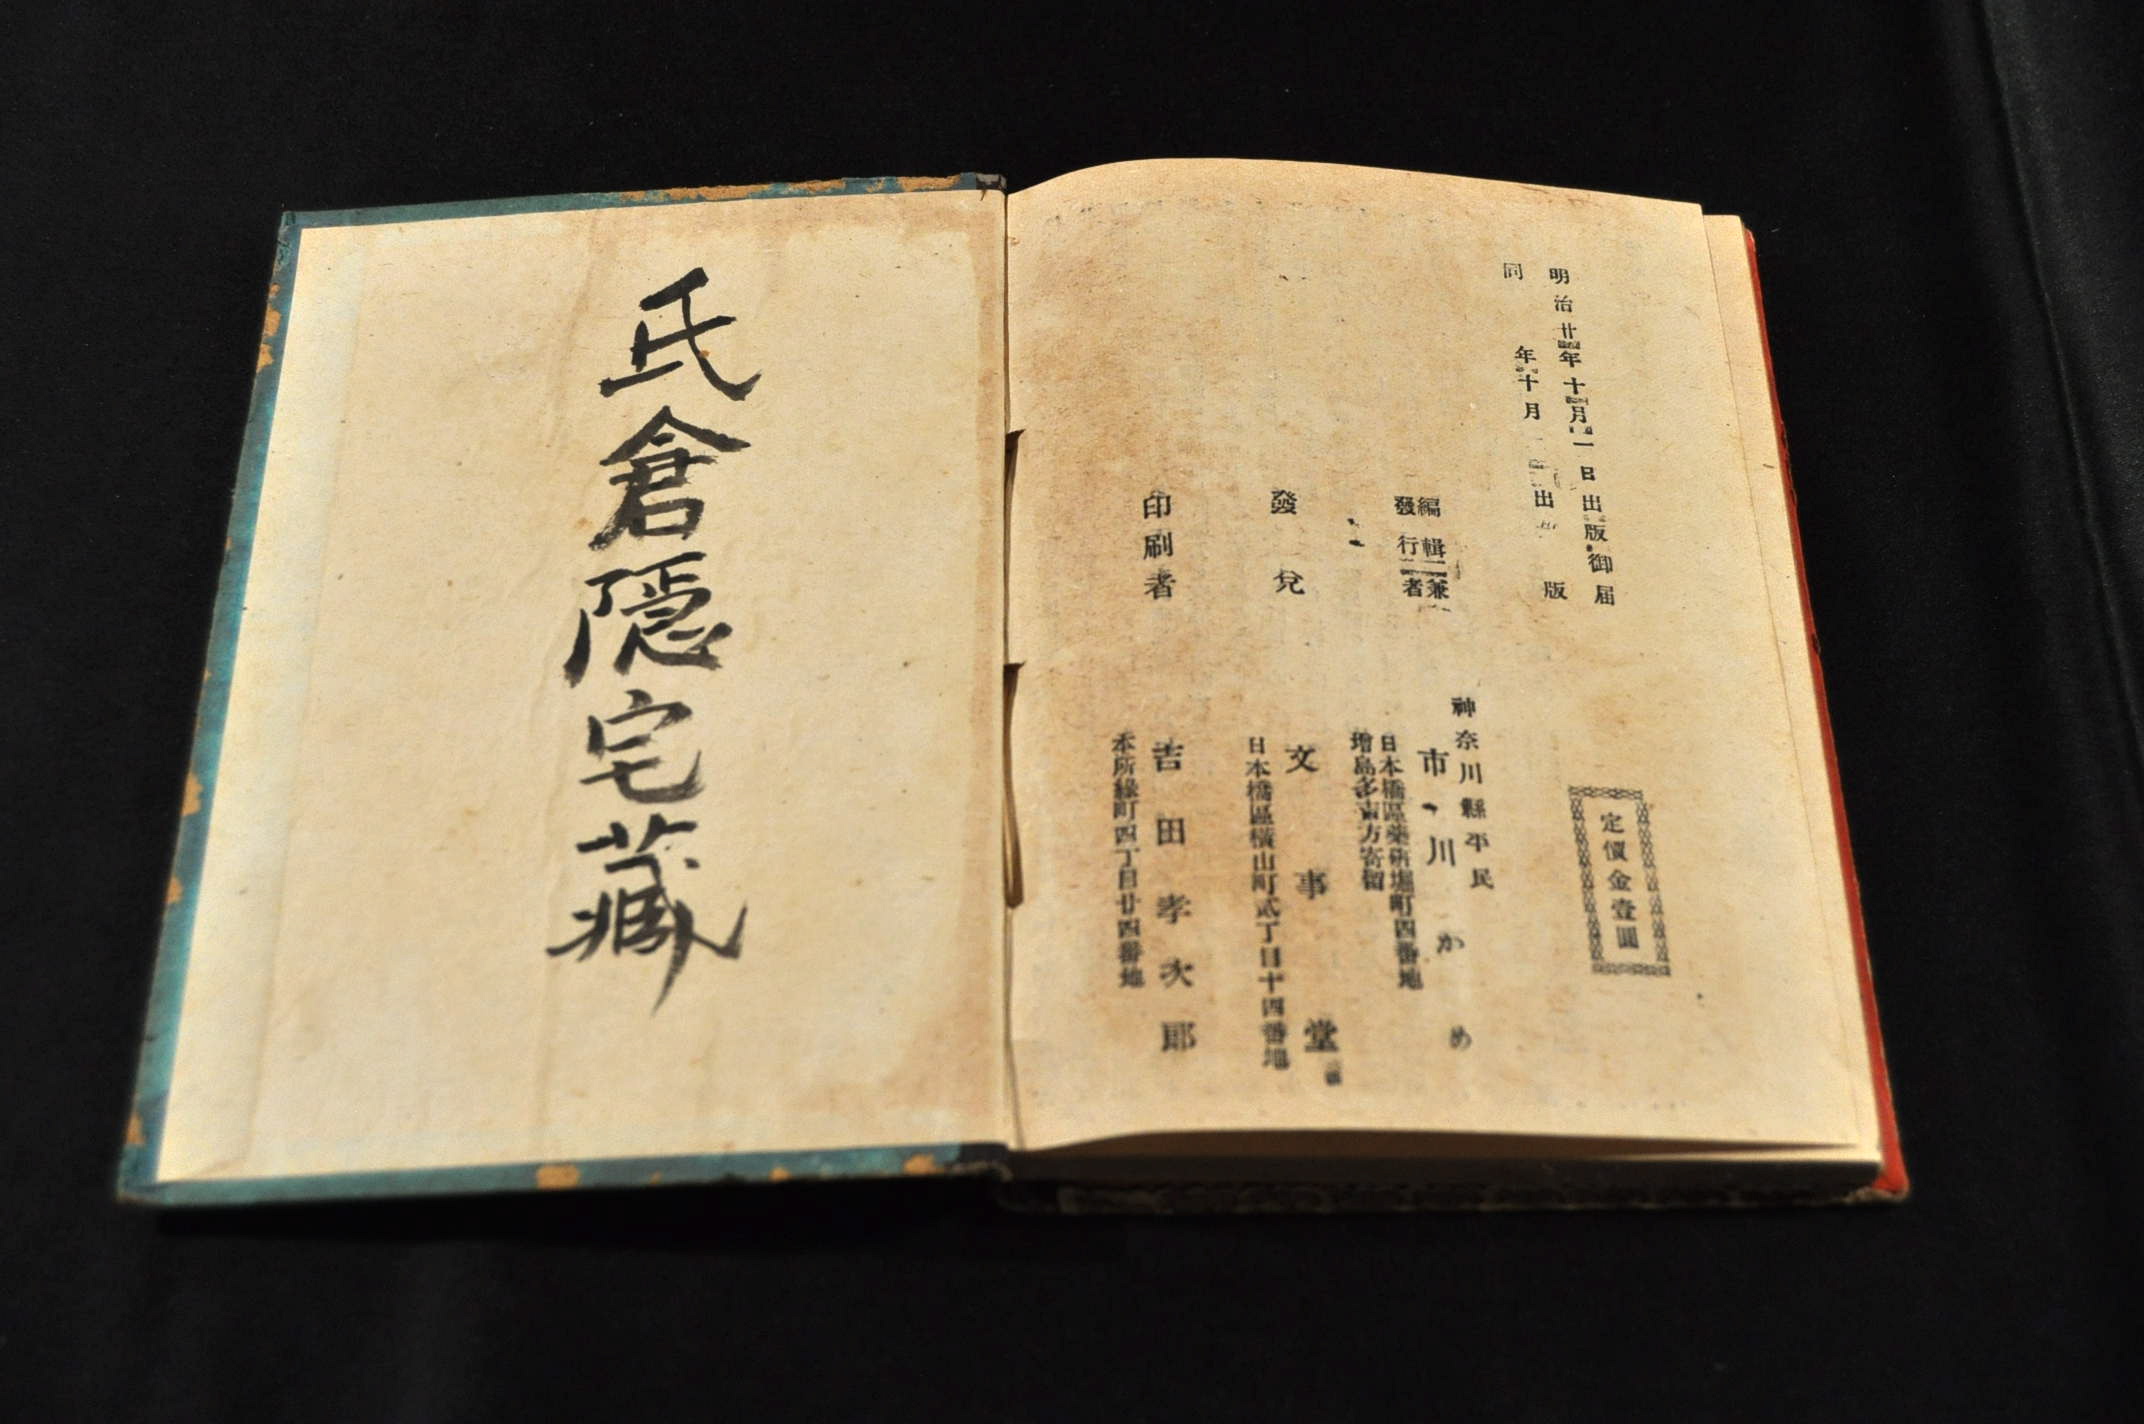 明治廿年十月一日出版御届
同年十月出版
定價金壹圓
編輯兼
發行者
神奈川縣平民
市川かめ
日本橋區藥研堀町四番地
増島多吉方寄留
發兌
文事堂
日本橋區横山町貳丁目十四番地
印刷者
吉田孝次郎
本所緑町四丁目廿四番地
氏倉隠宅藏